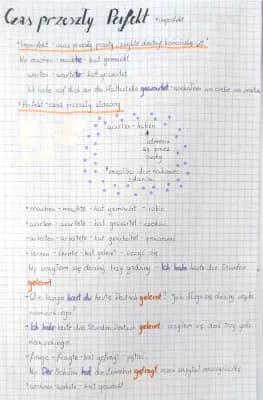 Czas przeszły Perfekt + imperfekt
* Imperfekt - czas przeszły prosty, zwykle dostaje końcówkę „te"
Np. machen - machte - hat gemacht
warten - wartete - hat gewartet
Ich habe auf dich an der Haltestelle gewartet - czekałam na ciebie na
* Perfekt - czas przeszły złożony
warten - haben
odmiana
się przez
osoby
* machen - machte - hat gemacht - robić
* warten - wartete - hat gewartet - czekać
* arbeiten - arbeitete - hat gearbeitet - pracować
* lernen - lernte - hat gelernt - uczyć się
Np. uczyłem się dzisiaj trzy godziny - Ich habe heute drei Stunden
gelernt.
* Wie lange hast du heute Deutsch gelernt? - Jak długo się dzisiaj uczyłeś
niemieckiego?
* Ich habe heute drei Stunden Deutsch gelernt - uczyłem się dziś trzy godz.
niemieckiego.
* frage - fragte - hat gefragt - pytać
Np. Der Schüler hat die Lehrerin gefragt